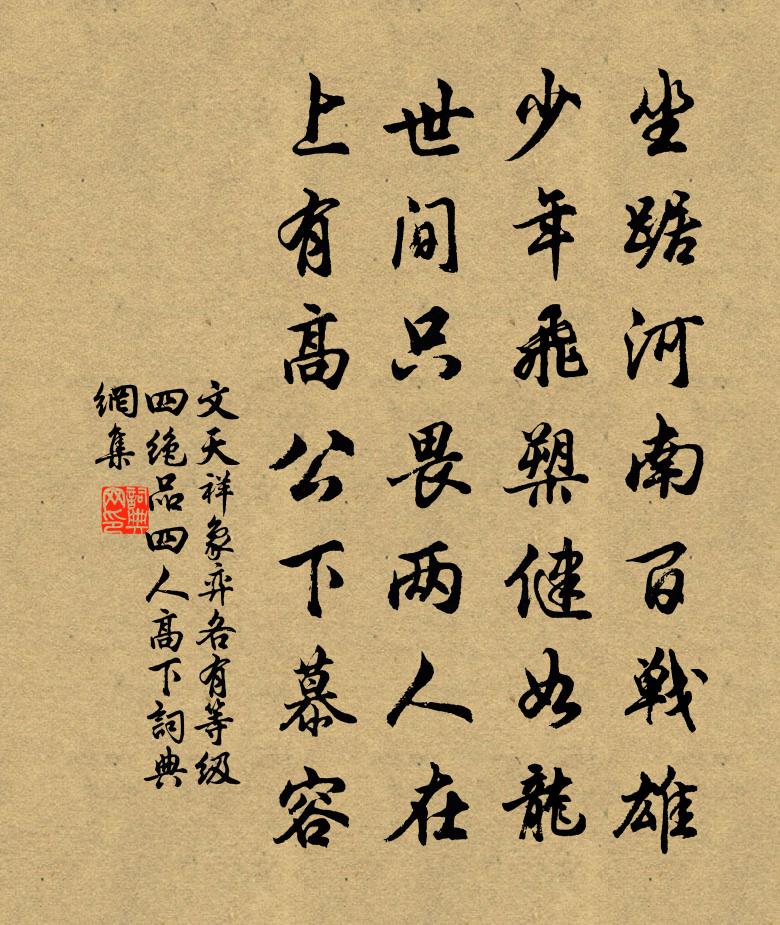 坐踞河南百戰雄
少年飛槊健如龍
世间只畏两人在
上有高公下慕容
文天祥象弈各有等级
四绝品四人高下詞典
網集
詞典网印